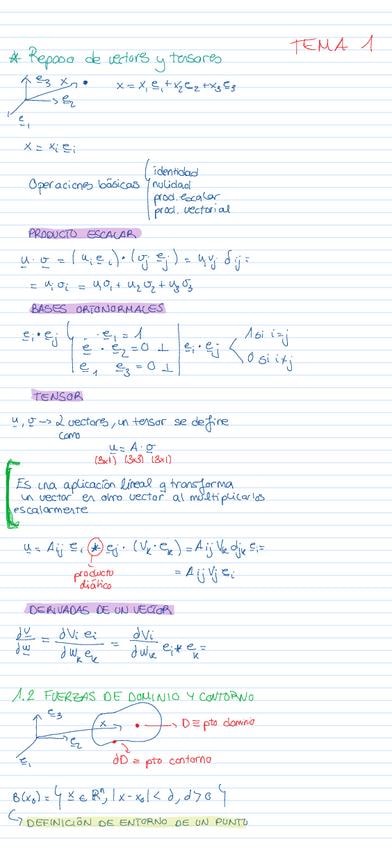 TEMA 1
* Repaso de vectores y tensores
e3 x
e2
e1
x = x1 e1 + x2 e2 + x3 e3
x = xi ei
Operaciones básicas { identidad
nulidad
prod. escalar
prod. vectorial
PRODUCTO ESCALAR
u · v = (ui ei) · (vj ej) = ui vj δij =
= ui vi = u1 v1 + u2 v2 + u3 v3
BASES ORTONORMALES
ei · ej { · e1 = 1
e · e2 = 0 ⊥
e1 e3 = 0 ⊥
ei · ej < 1 si i=j
0 si i≠j
TENSOR
u, v → 2 vectores, un tensor se define
como
u = A · v
(3x1) (3x3) (3x1)
Es una aplicación lineal q transforma
un vector en otro vector al multiplicarlos
escalarmente
u = Aij ei * ej · (Vk · ek) = Aij Vk djk ei =
producto
diático
= Aij Vj ei
DERIVADAS DE UN VECTOR
dv/dw = dVi ei / dWk ek = dVi/dWk ei * ek =
1.2 FUERZAS DE DOMINIO Y CONTORNO
e3
x
e2
e1
D ≡ pto dominio
dD ≡ pto contorno
B(x0) = { x ∈ Rⁿ, |x - x0| < d, d > 0 }
↳ DEFINICIÓN DE ENTORNO DE UN PUNTO